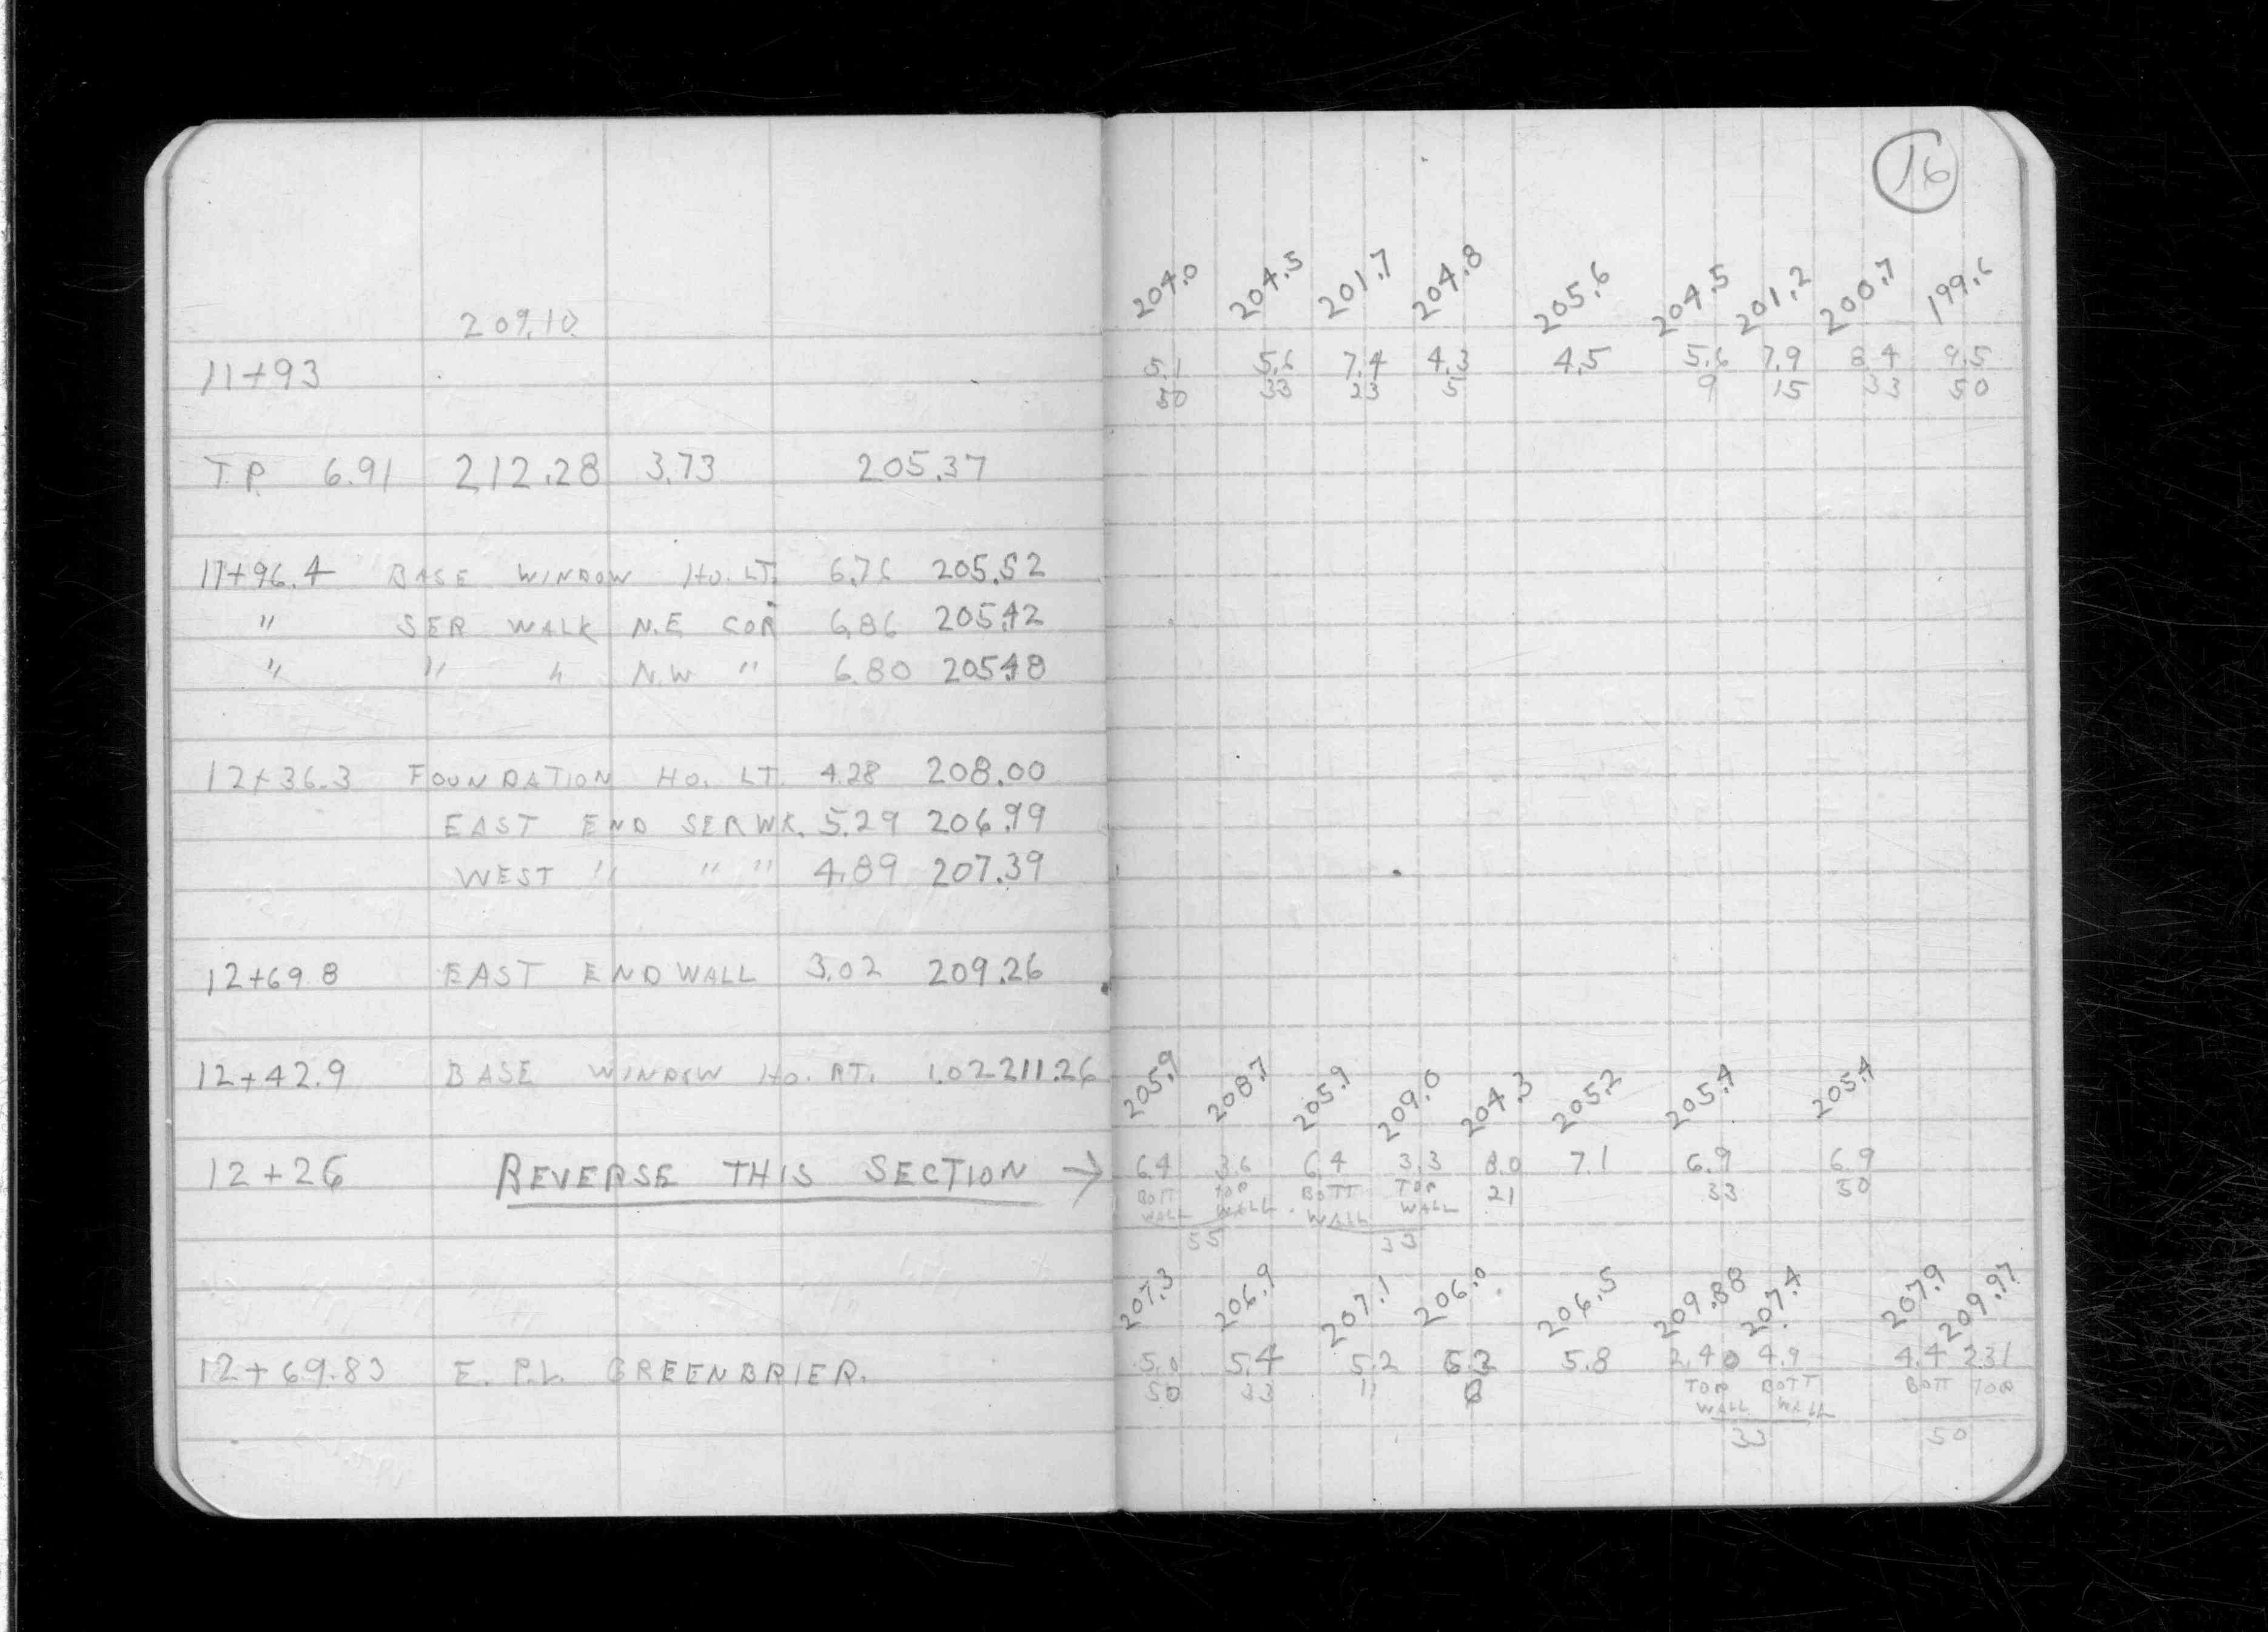 16
209.10
204.0 204.5 201.7 204.8 205.6 204.5 201.2 200.7 199.6
11+93 5.1 5.6 7.4 4.3 4.5 5.6 7.9 8.4 9.5
50 33 23 5 9 15 33 50
T.P. 6.91 212.28 3.73 205.37
11+96.4 BASE WINDOW HO. LT. 6.76 205.52
" SER WALK N.E COR 6.86 205.42
" " " N.W " 6.80 205.48
12+36.3 FOUNDATION HO. LT. 4.28 208.00
EAST END SER WK. 5.29 206.99
WEST " " " 4.89 207.39
12+69.8 EAST END WALL 3.02 209.26
12+42.9 BASE WINDOW HO. RT. 1.02 211.26
205.9 208.7 205.9 209.0 204.3 205.2 205.4 205.4
12+26 REVERSE THIS SECTION → 6.4 3.6 6.4 3.3 8.0 7.1 6.9 6.9
BOTT TOP BOTT TOP 21 33 50
WALL WALL WALL WALL
55 33
207.3 206.9 207.1 206.0 206.5 209.88 207.4 207.9 209.97
12+69.83 E. P.L. GREENBRIER. 5.0 5.4 5.2 5.8 2.40 4.9 4.4 2.31
50 33 11 TOP BOTT BOTT TOP
WALL WALL
33 50